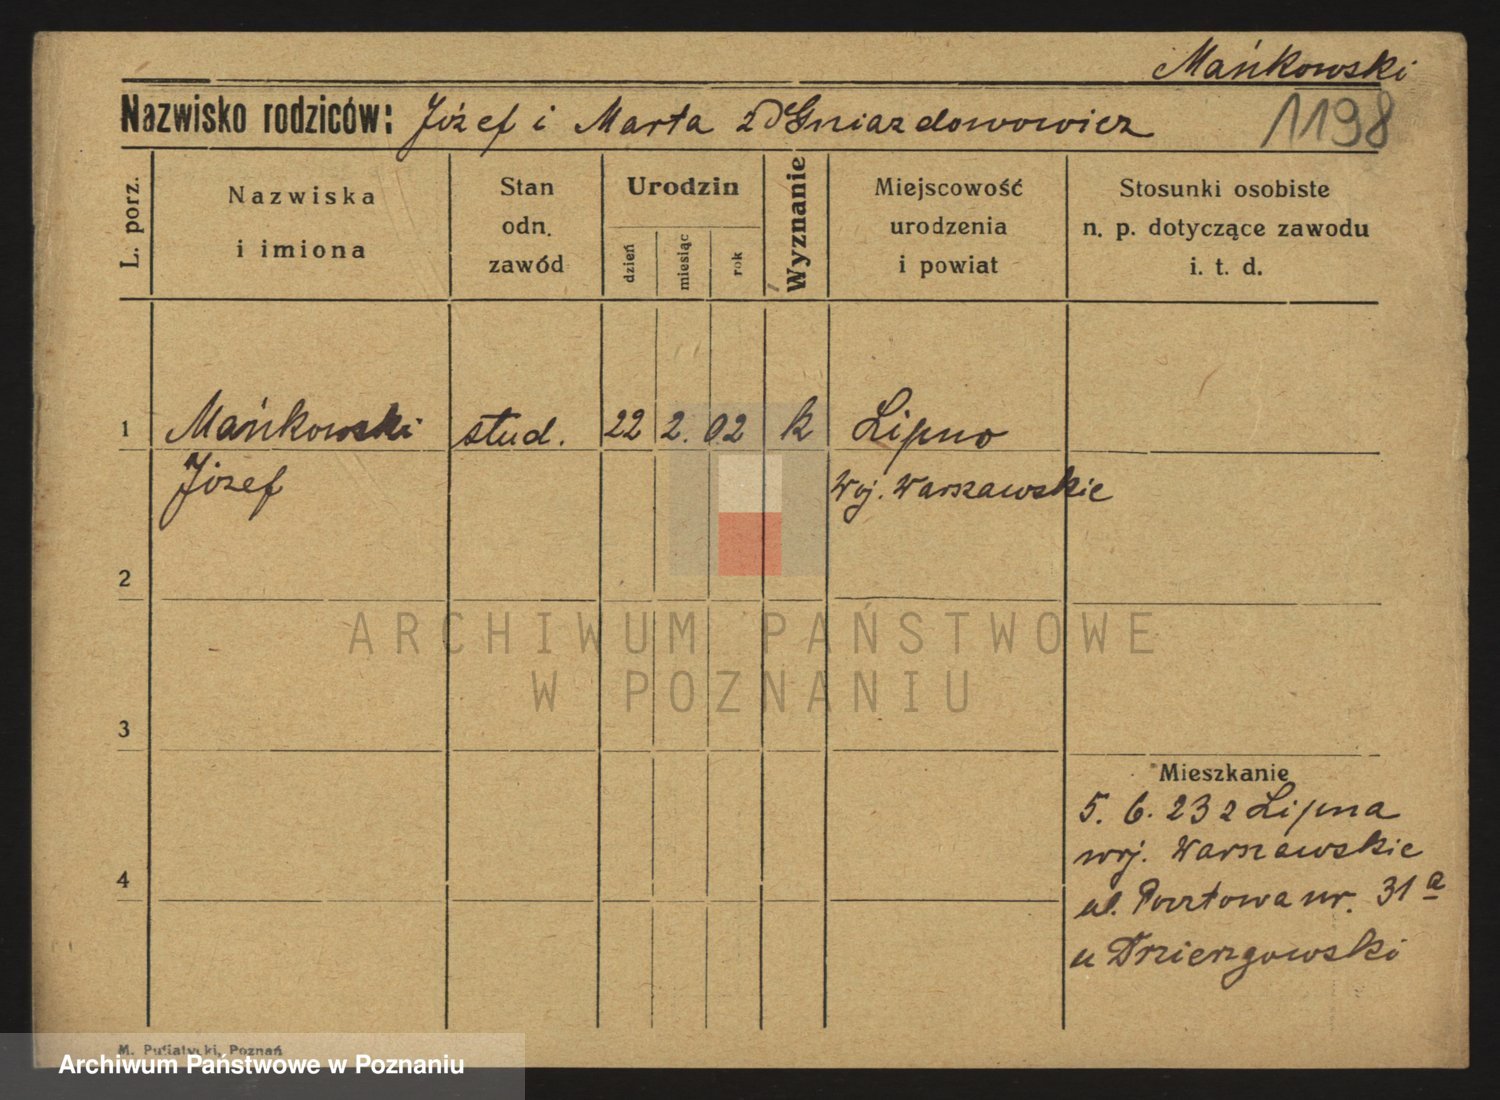 Mańkowski
Nazwisko rodziców: Józef i Marta z d Gniazdowowicz
1198
L. porz.
Nazwiska
i imiona
Stan
odn.
zawód
Urodzin
dzień
miesiąc
rok
Wyznanie
Miejscowość
urodzenia
i powiat
Stosunki osobiste
n. p. dotyczące zawodu
i. t. d.
1 Mańkowski stud. 22 2. 02 k Lipno
Józef Woj. Warszawskie
2
ARCHIWUM PAŃSTWOWE
W POZNANIU
3
Mieszkanie
5. 6. 23 z Lipna
woj. Warszawskie
4
ul. Pocztowa nr. 31 a
u
M. Putiatycki, Poznań
Archiwum Państwowe w Poznaniu